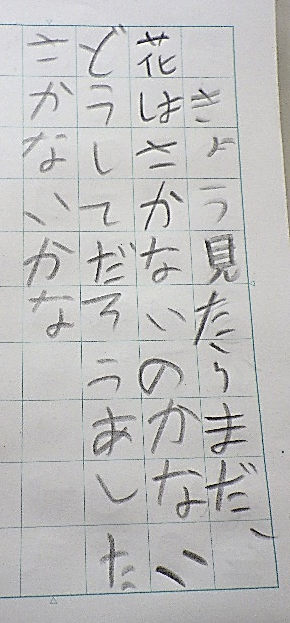 きょう見たらまだ、
花はさかないのかない
どうしてだろうあした
さかないかな